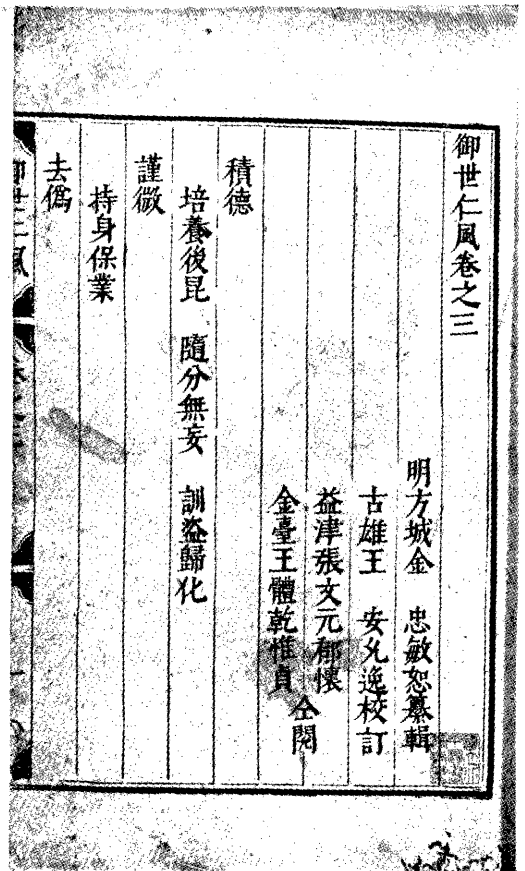 御世仁風卷之三
明方城金　忠敏恕纂輯
古雄王　安允逸校訂
益津張文元郁懷
金臺王體乾惟貞
仝閱
積德
培養後昆　隨分無妄　訓盜歸化
謹微
持身保業
去僞
御世仁風　卷之三